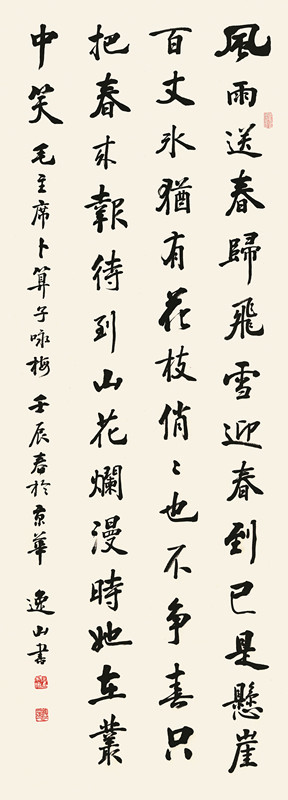 風雨送春歸飛雪迎春到已是懸崖
百丈冰猶有花枝俏〻也不争春只
把春來報待到山花爛漫時她在叢
中笑 毛主席卜算子咏梅 壬辰春於京華 逸山書